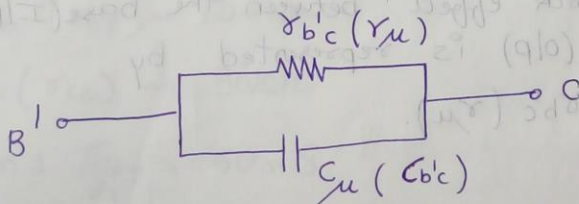 r_b'c (r_μ)
B' C
C_μ ( C_b'c)